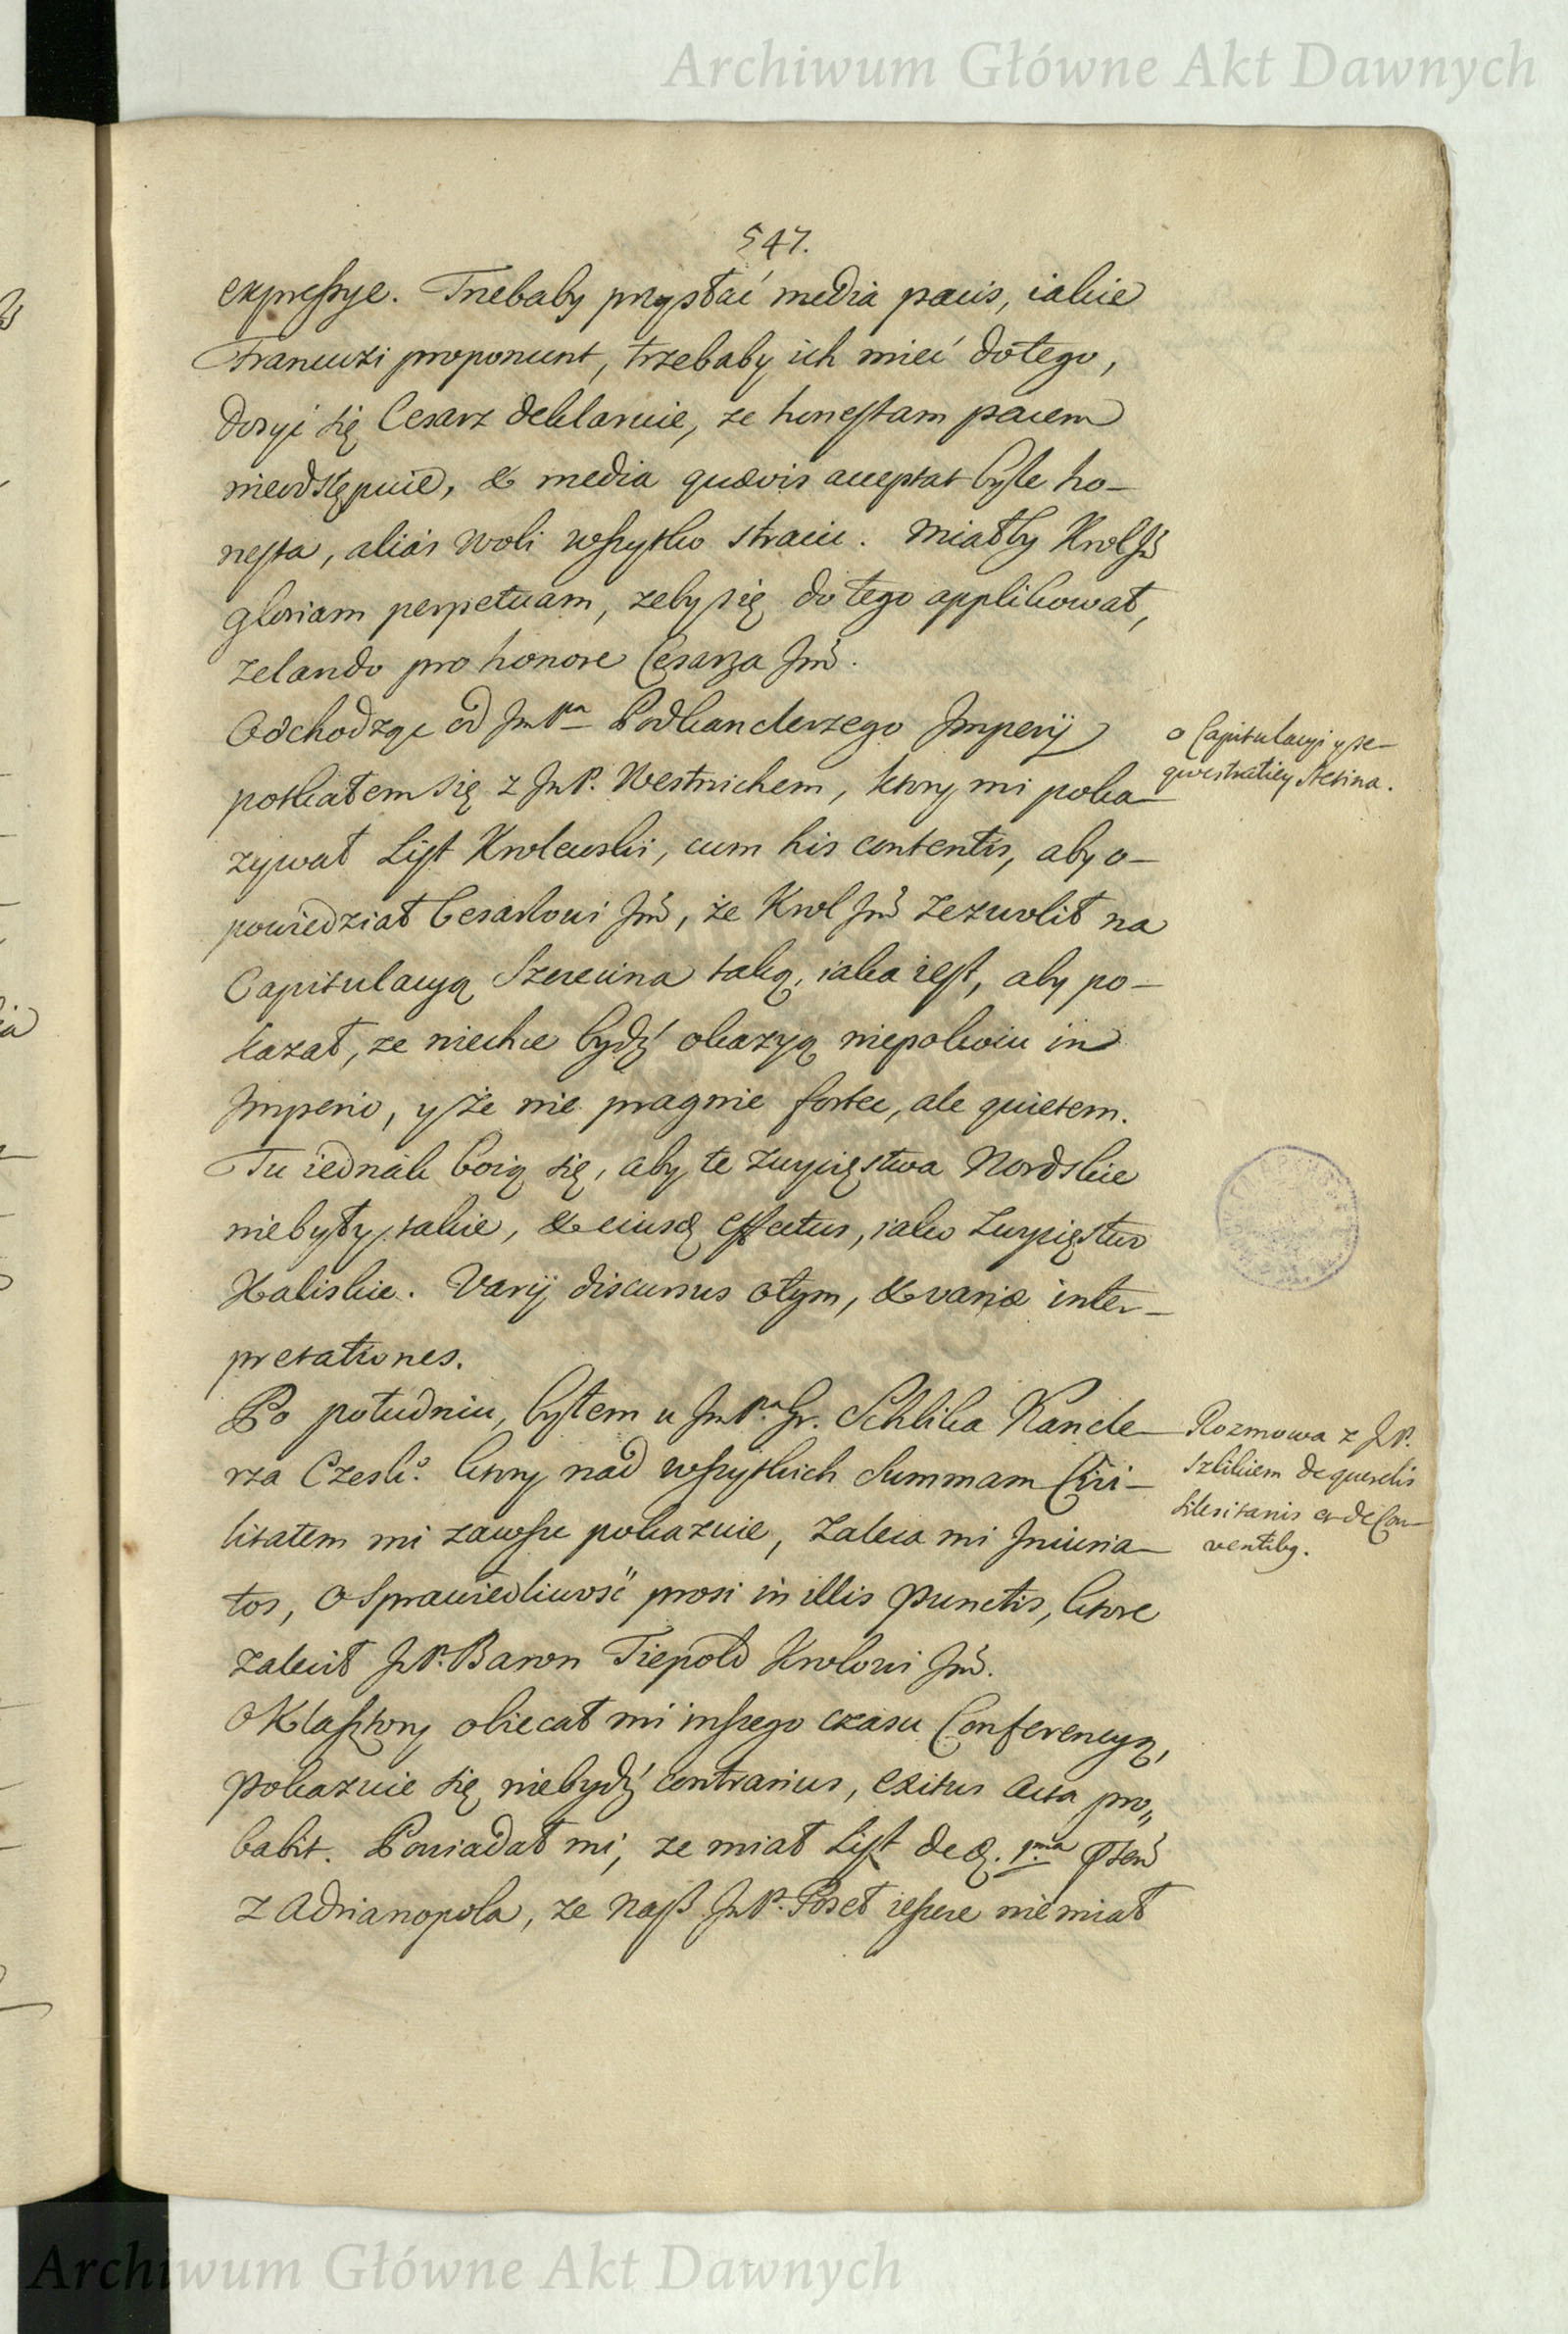 Archiwum Główne Akt Dawnych
547.
expressye. Trzebaby przysłać media pacis, iakie
Francuzi proponunt, trzebaby ich mieć do tego,
dosyć się Cesarz deklaruie, ze honestam pacem
nieodstępuie, & media quævis acceptat byle ho–
nesta, aliàs woli wszytko stracic. Miałby Krol Jmć
gloriam perpetuam, zeby się do tego applikował,
zelando pro honore Cesarza Jmć.
Odchodząc od JmPna Podkanclerzego Imperij
potkałem się z JmP. Westnichem, ktory mi poka–
zywał List Krolewski, cum his contentis, aby o–
powiedział Cesarlowi Jmć, że Krol Jmć zezwolił na
Capitulacyą Szczecina taką, iaka iest, aby po–
kazał, ze niechce bydź okazyą niepokoiu in
Imperio, y że nie pragnie fortec, ale quietem.
Tu iednak boią się, aby te zwycięstwa Nordskie
niebyły takie, & eiusd effectus, iako zwycięstwo
Kaliskie. Varij discursus o tym, & variæ inter–
pretationes.
o Capitulacyi y se–
qwestratiey Stetina.
Po południu, byłem u JmPna Gr. Schlika Kancle–
rza Czeskigo ktory nad wszytkich summam Civi–
litatem mi zawsze pokazuie, zaleca mi Iniuria–
tos, o sprawiedliwość prosi in illis punctis, ktore
zalecił JmP. Baron Tiepold Krolowi Jmć.
O Klasztory obiecał mi inszego czasu Conferencyą,
pokazuie się niebydź contrarius, exitus acta pro„
babit. Powiadał mi, ze miał List de d. 1ma
z Adrianopola, ze nasz JmP. Poseł ieszcze nie miał
Rozmowa z JmP.
Szlikiem de querelis
Silesitanis et de Con–
ventibq.
Archiwum Główne Akt Dawnych